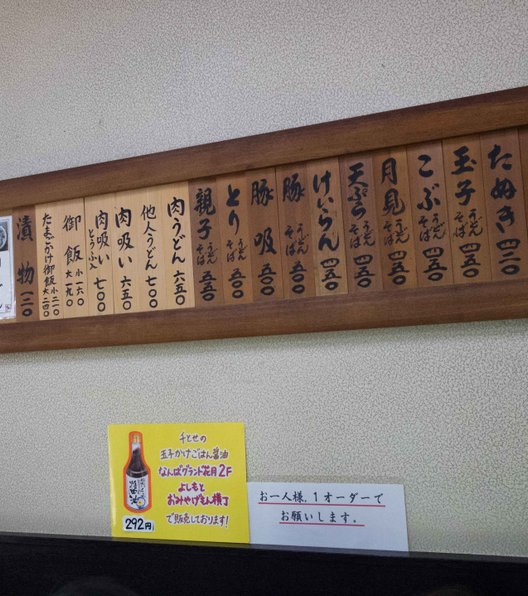 たぬき 四三〇
玉子 うどん そば 四五〇
こぶ うどん そば 四五〇
月見 うどん そば 四五〇
天ぷら うどん そば 四五〇
けいらん 四五〇
豚 うどん そば 五〇〇
豚吸 五〇〇
とり うどん そば 五〇〇
親子 うどん そば 五五〇
肉うどん 六五〇
他人うどん 七〇〇
肉吸い 六五〇
肉吸い とうふ入 七〇〇
御飯 小一六〇 大一九〇
たまごかけ御飯 小二一〇 大二四〇
漬物 一二〇
千とせの
玉子かけごはん醤油
なんばグランド花月2F
よしもと
おみやげもん横丁
で販売しております!
292円
お一人様、1オーダーで
お願いします。